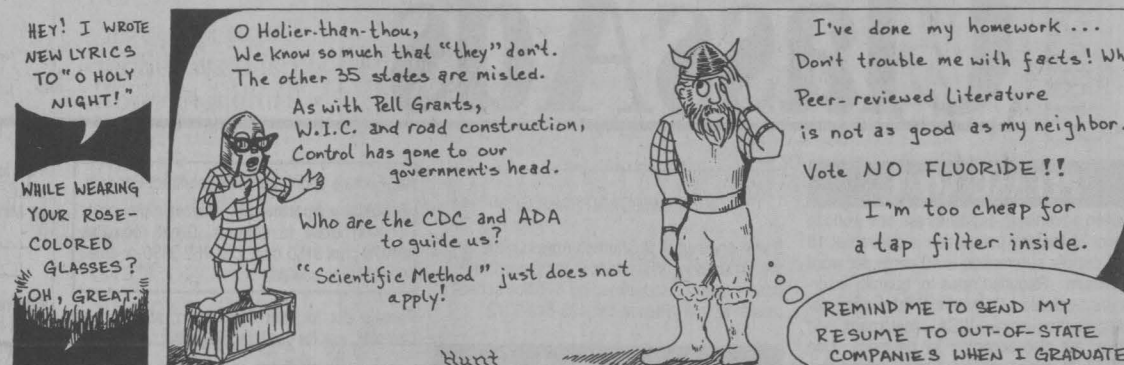 HEY! I WROTE
NEW LYRICS
TO "O HOLY
NIGHT!"
WHILE WEARING
YOUR ROSE-
COLORED
GLASSES?
OH, GREAT.
O Holier-than-thou,
We know so much that "they" don't.
The other 35 states are misled.
As with Pell Grants,
W.I.C. and road construction,
Control has gone to our
government's head.
Who are the CDC and ADA
to guide us?
"Scientific Method" just does not
apply!
Hunt
I've done my homework ...
Don't trouble me with facts!
Peer-reviewed Literature
is not as good as my neighbor.
Vote NO FLUORIDE!!
I'm too cheap for
a tap filter inside.
REMIND ME TO SEND MY
RESUME TO OUT-OF-STATE
COMPANIES WHEN I GRADUATE